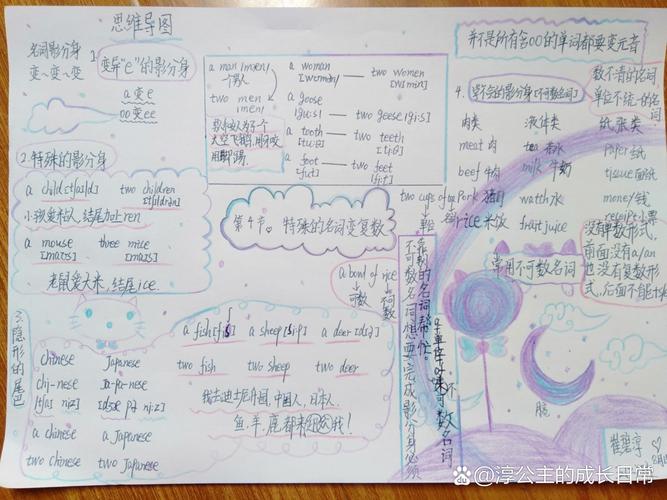 思维导图
名词影分身
变~变~变
1.
变异"e"的影分身
a变e
oo变ee
a man /mæn/
个男人
two men
/men/
a woman — two women
[ˈwʊmən] [ˈwɪmɪn]
a goose
[ɡuːs] — two geese [ɡiːs]
a tooth — two teeth
[tuːθ] [tiːθ]
a foot — two feet
[fʊt] [fiːt]
并不是所有含oo的单词都要变元音
4.
的影分身[不可数名词]
数不清的名词
单位不统一的名词
肉类 液体类 纸张类
meat 肉 tea 茶水 paper 纸
beef 牛肉 milk 牛奶 tissue 面纸
Pork 猪肉 water 水 money 钱
rice 米饭 fruit juice receipt 小票
没有单数形式,
前面没有a/an
也没有复数形
式,后面不能
常用不可数名词
2.特殊的影分身
a child [tʃaɪld] two children
[ˈtʃɪldrən]
小孩爱本人,结尾加上ren
a mouse three mice
[maʊs] [maɪs]
老鼠爱大米,结尾ice.
第4节。特殊的名词变复数
two cups of
a bowl of rice
可数 不可数
不可数名词想要完成影分身必须
靠数的名词帮忙。
不可数名词
3.隐形的尾巴
Chinese Japanese
Chi-nese Ja-pa-nese
[tʃaɪ niːz] [dʒæ pə niːz]
a Chinese a Japanese
two Chinese two Japanese
a fish [fɪʃ] a sheep [ʃiːp] a deer [dɪə]
two fish two sheep two deer
我去迪士尼乐园,中国人,日本人,
鱼、羊、鹿都来我!
崔碧淳
淳公主的成长日常